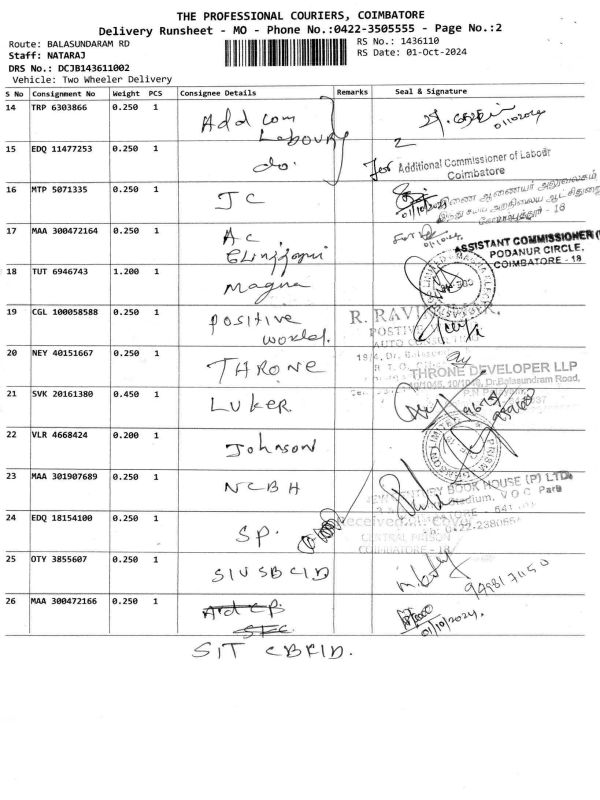 THE PROFESSIONAL COURIERS, COIMBATORE
Delivery Runsheet - MO - Phone No.:0422-3505555 - Page No.:2
Route: BALASUNDARAM RD
RS No.: 1436110
Staff: NATARAJ
RS Date: 01-Oct-2024
DRS No.: DCJB143611002
Vehicle: Two Wheeler Delivery
S No Consignment No Weight PCS Consignee Details Remarks Seal & Signature
14 TRP 6303866 0.250 1 Add com
Laboury
01/10/2024
15 EDQ 11477253 0.250 1 do.
for Additional Commissioner of Labour
Coimbatore
16 MTP 5071335 0.250 1 JC
01/10/2024
17 MAA 300472164 0.250 1 A.C.
ASSISTANT COMMISSIONER
PODANUR CIRCLE,
COIMBATORE - 18
18 TUT 6946743 1.200 1 Magna
19 CGL 100058588 0.250 1 positive
world.
20 NEY 40151667 0.250 1 THRONE
THRONE DEVELOPER LLP
Dr.Balasundram Road,
21 SVK 20161380 0.450 1 LUKER
22 VLR 4668424 0.200 1 Johnson
23 MAA 301907689 0.250 1 NCBH
BOOK HOUSE (P) LTD.
Stadium, V O C Park
24 EDQ 18154100 0.250 1 SP.
CENTRAL PRISON
COIMBATORE - 18
25 OTY 3855607 0.250 1 SIUSBCID
26 MAA 300472166 0.250 1
01/10/2024.
SIT CBFID.